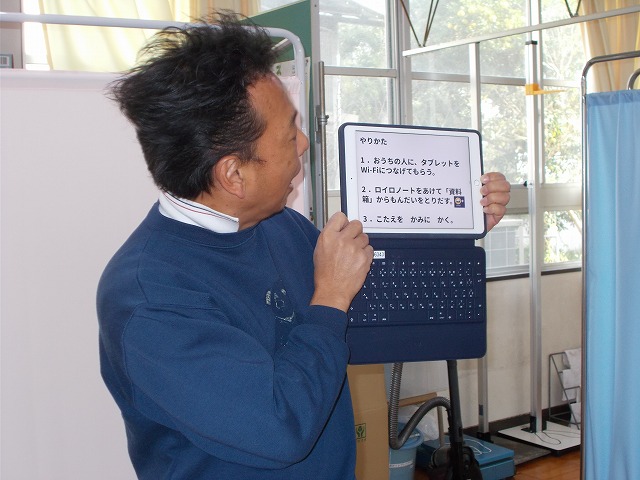 やりかた
１．おうちの人に、タブレットを
Wi-Fiにつなげてもらう。
２．ロイロノートをあけて「資料
箱」からもんだいをとりだす。
３．こたえを　かみに　かく。